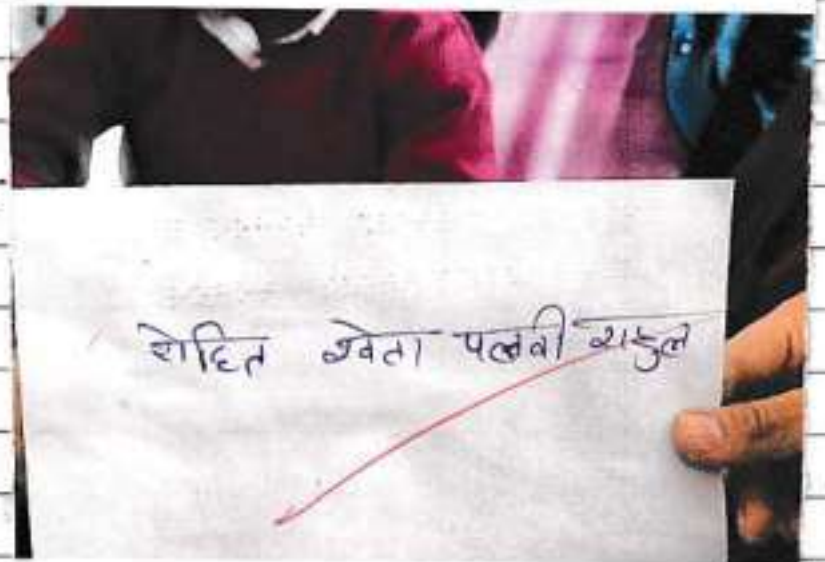 रोहित श्वेता पल्लवी राहुल